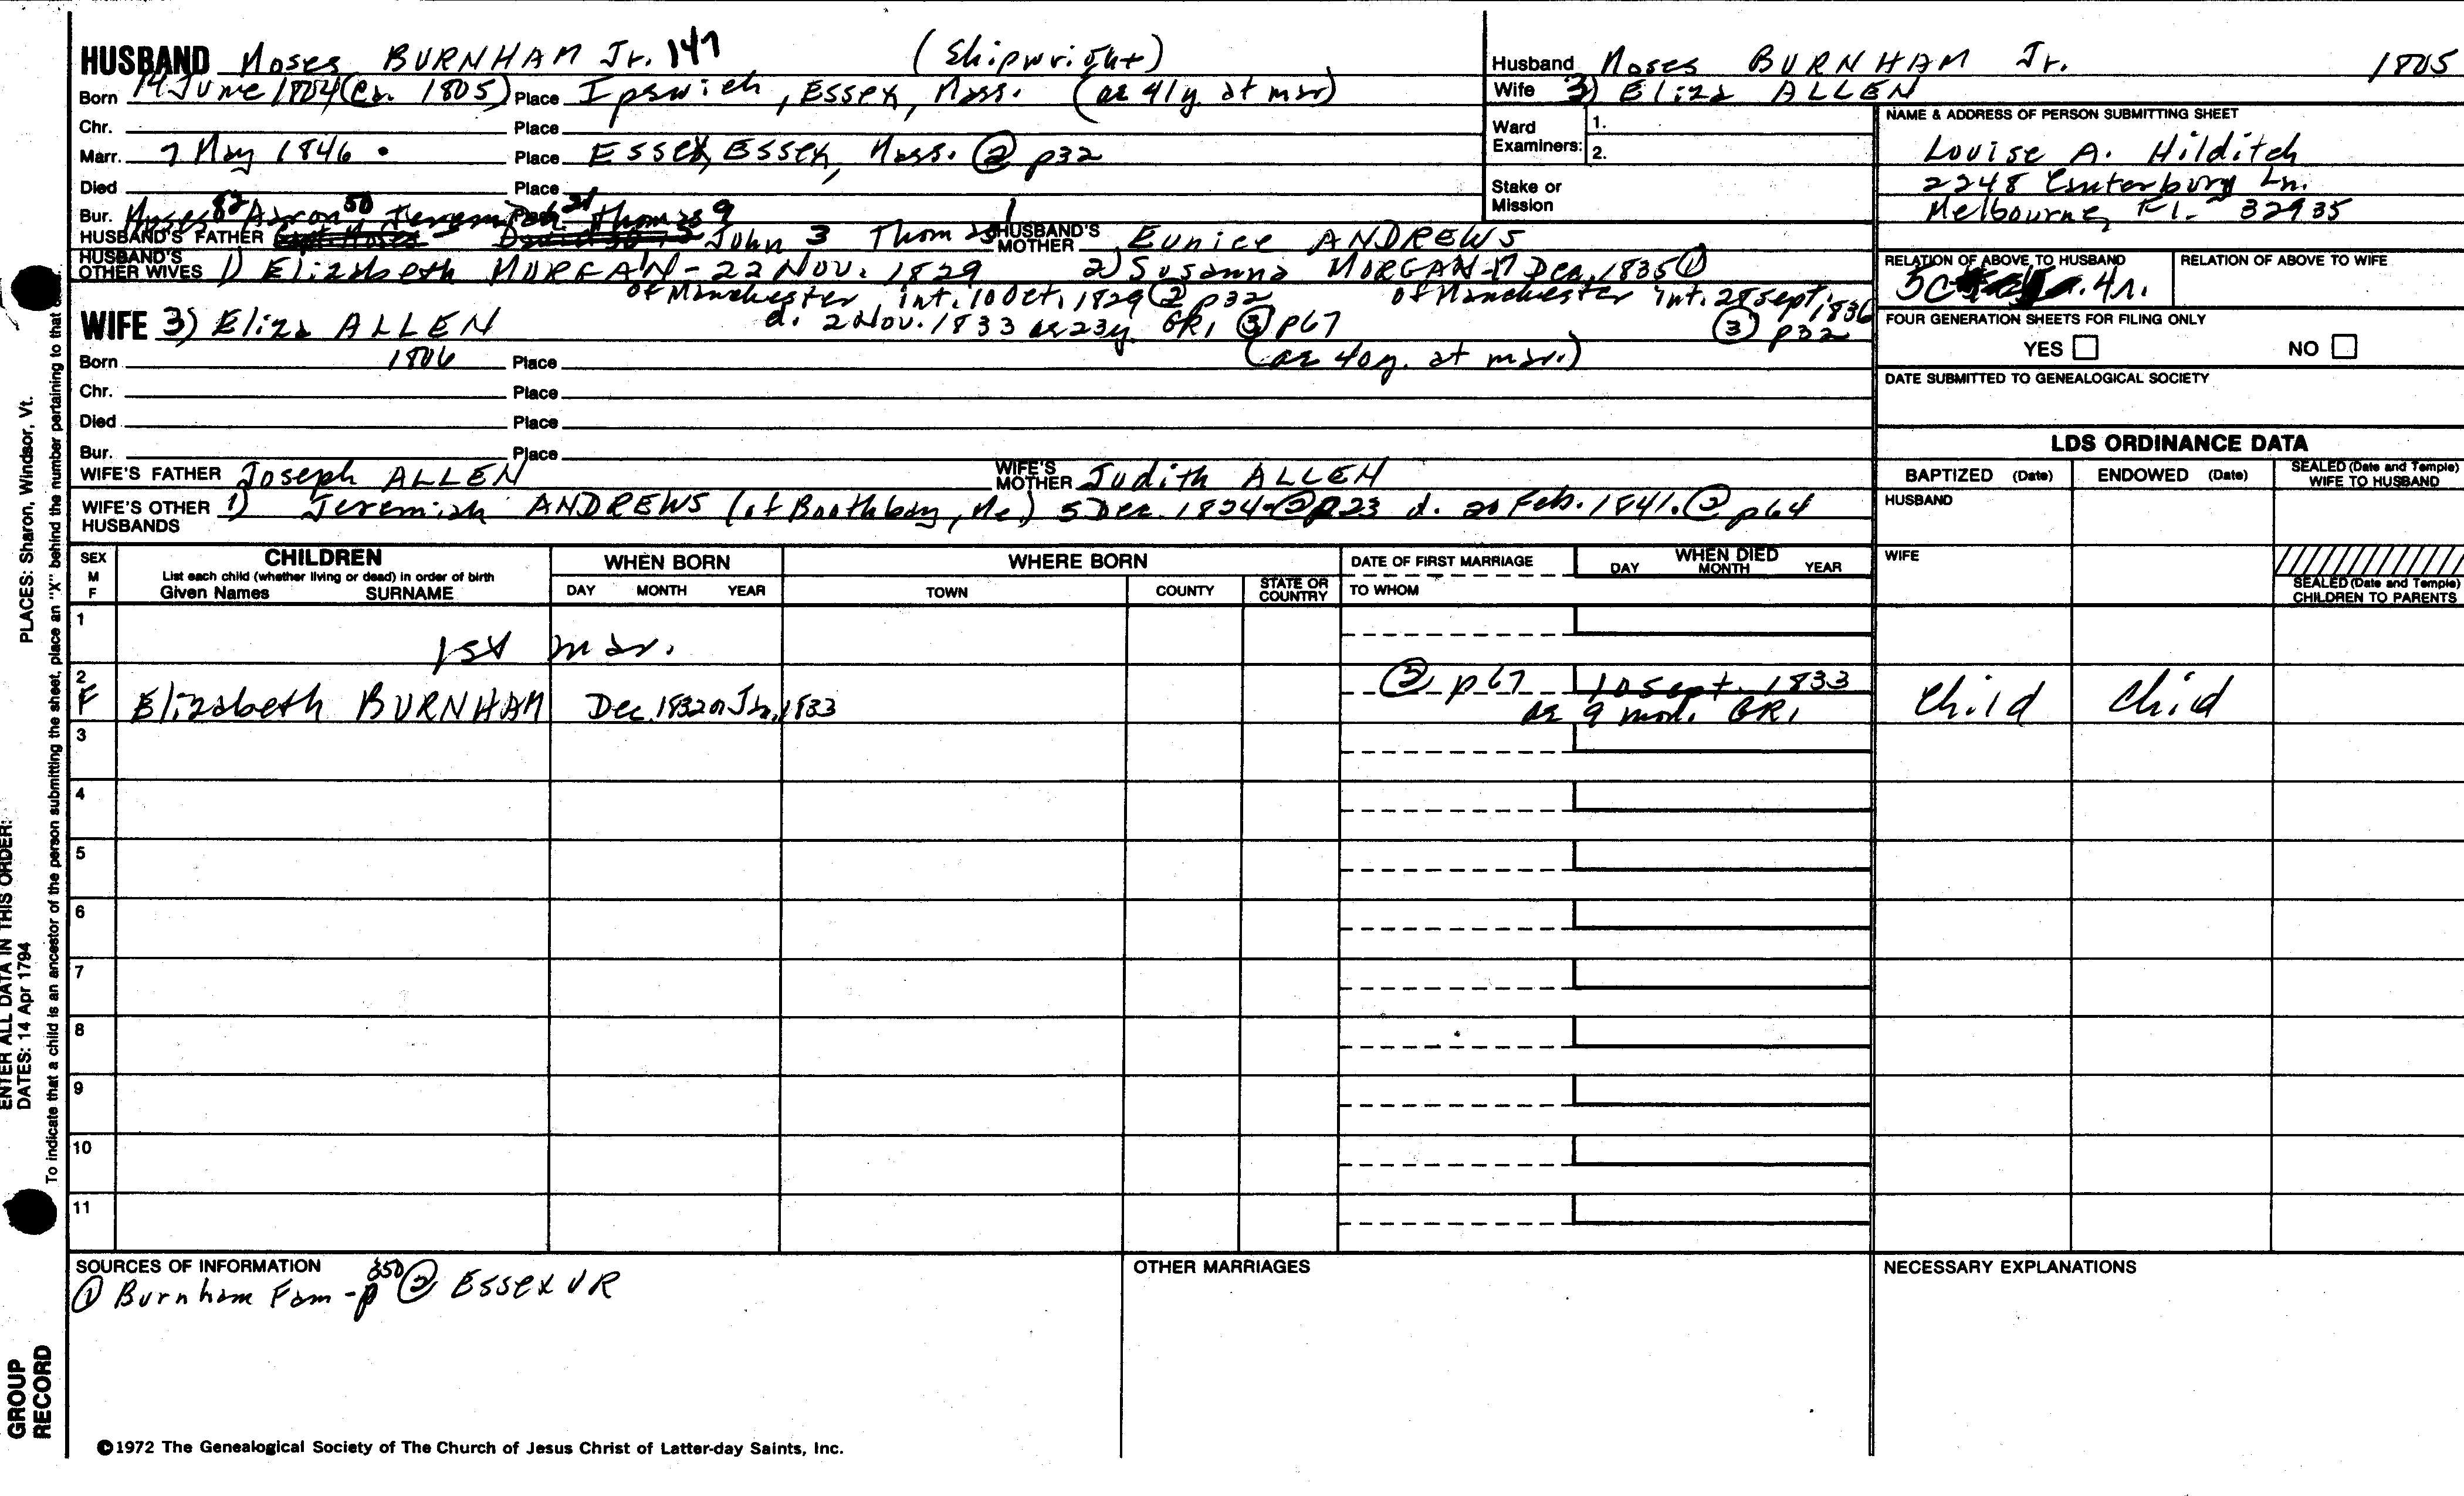 HUSBAND Moses BURNHAM Jr. 147 (Shipwright)
Born 14 June 1804 (Ca. 1805) Place Ipswich, Essex, Mass. (ae 41y. at mar)
Chr. Place
Marr. 7 May 1846 Place Essex, Essex, Mass. ② p32
Died Place
Bur. Moses 82 Aaron 50 Jeremiah 21 Thomas 9
HUSBAND'S FATHER John 3 Thomas 1 HUSBAND'S MOTHER Eunice ANDREWS
HUSBAND'S OTHER WIVES 1) Elizabeth MORGAN - 22 Nov. 1829 2) Susanna MORGAN - 17 Dec. 1835 ①
of Manchester, int. 10 Oct. 1829 ② p32 of Manchester int. 28 Sept. 1836
d. 2 Nov. 1833 ae 23y. GR1 ③ p67 ③ p32
WIFE 3) Eliza ALLEN
Born 1806 Place (ae 40y. at mar.)
Chr. Place
Died Place
Bur. Place
WIFE'S FATHER Joseph ALLEN WIFE'S MOTHER Judith ALLEN
WIFE'S OTHER HUSBANDS 1) Jeremiah ANDREWS (of Boothbay, Me.) 5 Dec. 1824 - ② p23 d. 20 Feb. 1841. ② p64
Husband Moses BURNHAM Jr. 1805
Wife 3) Eliza ALLEN
Ward Examiners: 1.
2.
Stake or Mission
NAME & ADDRESS OF PERSON SUBMITTING SHEET
Louise A. Hilditch
2248 Canterbury Ln.
Melbourne, Fl. 32935
RELATION OF ABOVE TO HUSBAND RELATION OF ABOVE TO WIFE
5C 4r.
FOUR GENERATION SHEETS FOR FILING ONLY
YES NO
DATE SUBMITTED TO GENEALOGICAL SOCIETY
LDS ORDINANCE DATA
BAPTIZED (Date) ENDOWED (Date) SEALED (Date and Temple) WIFE TO HUSBAND
HUSBAND
WIFE
SEALED (Date and Temple) CHILDREN TO PARENTS
SEX M F
CHILDREN
List each child (whether living or dead) in order of birth
Given Names SURNAME
WHEN BORN
DAY MONTH YEAR
WHERE BORN
TOWN COUNTY STATE OR COUNTRY
DATE OF FIRST MARRIAGE
TO WHOM
WHEN DIED
DAY MONTH YEAR
1
1st mar.
2 ③ p67 10 Sept. 1833
F Elizabeth BURNHAM Dec. 1832 or Jan. 1833 ae 9 mo. GR1 Child Child
3
4
5
6
7
8
9
10
11
SOURCES OF INFORMATION
① Burnham Fam - p 350 ② Essex VR
OTHER MARRIAGES
NECESSARY EXPLANATIONS
©1972 The Genealogical Society of The Church of Jesus Christ of Latter-day Saints, Inc.
PLACES: Sharon, Windsor, Vt.
ENTER ALL DATA IN THIS ORDER:
DATES: 14 Apr 1794
To indicate that a child is an ancestor of the person submitting the sheet, place an "X" behind the number pertaining to that
GROUP
RECORD